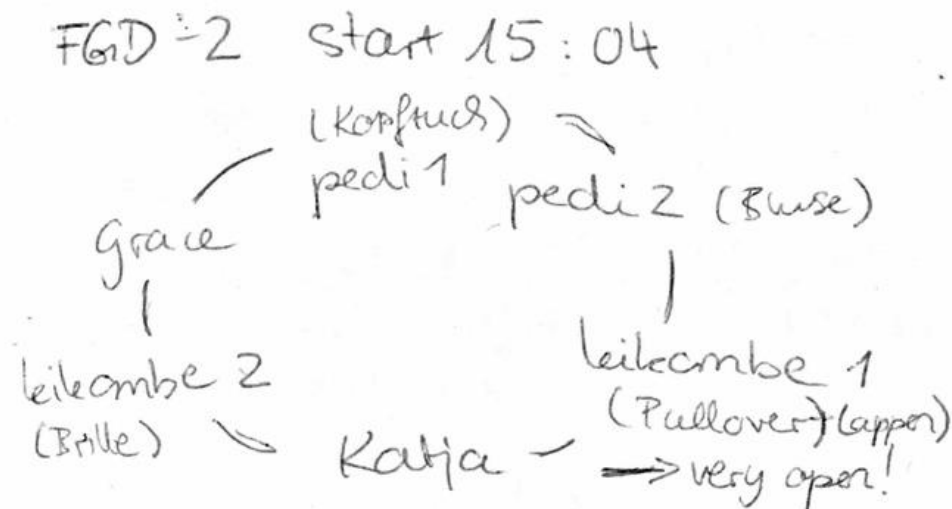 FGD-2 Start 15:04
(Kopftuch)
pedi 1
pedi 2 (Bluse)
Grace
leikambe 2
(Brille)
leikambe 1
(Pullover)
Katja
→ very open!